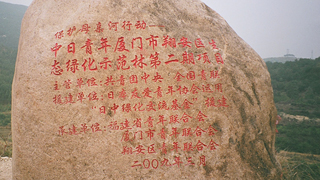 保护母亲河行动
中日青年厦门市翔安区生
态绿化示范林第二期项目
主管单位:共青团中央 全国青联
捐建单位:日本庆爱青年协会运用
"日中绿化交流基金"援建
承建单位:福建省青年联合会
厦门市青年联合会
翔安区青年联合会
二〇〇九年三月